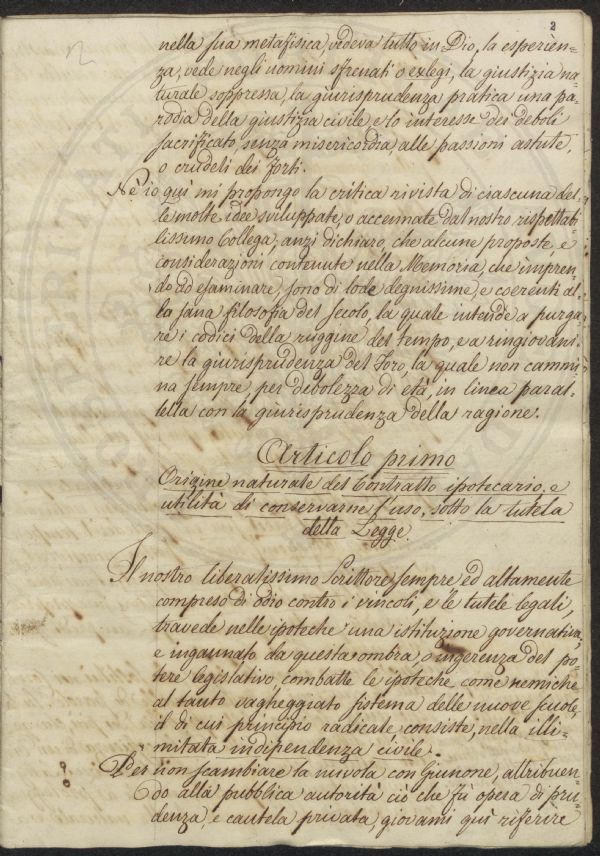 2
nella sua metafisica, vedeva tutto in Dio, la esperien=
za, vede negli uomini sfrenati o exlegi, la giustizia na=
turale soppressa, la giurisprudenza pratica una pa=
rodia della giustizia civile, e lo interesse dei deboli
sacrificato, senza misericordia, alle passioni astute,
o crudeli dei forti.
Nè io quì mi propongo la critica rivista di ciascuna del=
le molte idee sviluppate, o accennate dal nostro rispettab=
ilissimo Collega, anzi dichiaro, che alcune proposte, e
considerazioni contenute nella Memoria, che impren=
do ad esaminare, sono di lode degnissime, e coerenti al=
la sana filosofia del secolo, la quale intende a purga=
re i codici della ruggine del tempo, e a ringiovani=
re la giurisprudenza del Foro, la quale non cammi=
na sempre, per debolezza di età, in linea paral=
lella con la giurisprudenza della ragione.
Articolo primo
Origine naturale del Contratto ipotecario, e
utilità di conservarne l'uso, sotto la tutela
della Legge
Il nostro liberalissimo Scrittore, sempre ed altamente
compreso di odio contro i vincoli, e le tutele legali,
travede nelle ipoteche una istituzione governativa,
e ingannato da questa ombra, o ingerenza del po=
tere legislativo combatte le ipoteche come nemiche
al tanto vagheggiato sistema delle nuove scuole,
il di cui principio radicale consiste, nella illi=
mitata indipendenza civile.
Per non scambiare la nuvola con Giunone, attribuen=
do alla pubblica autorità ciò che fù opera di pru=
denza, e cautela privata, giovami quì riferire